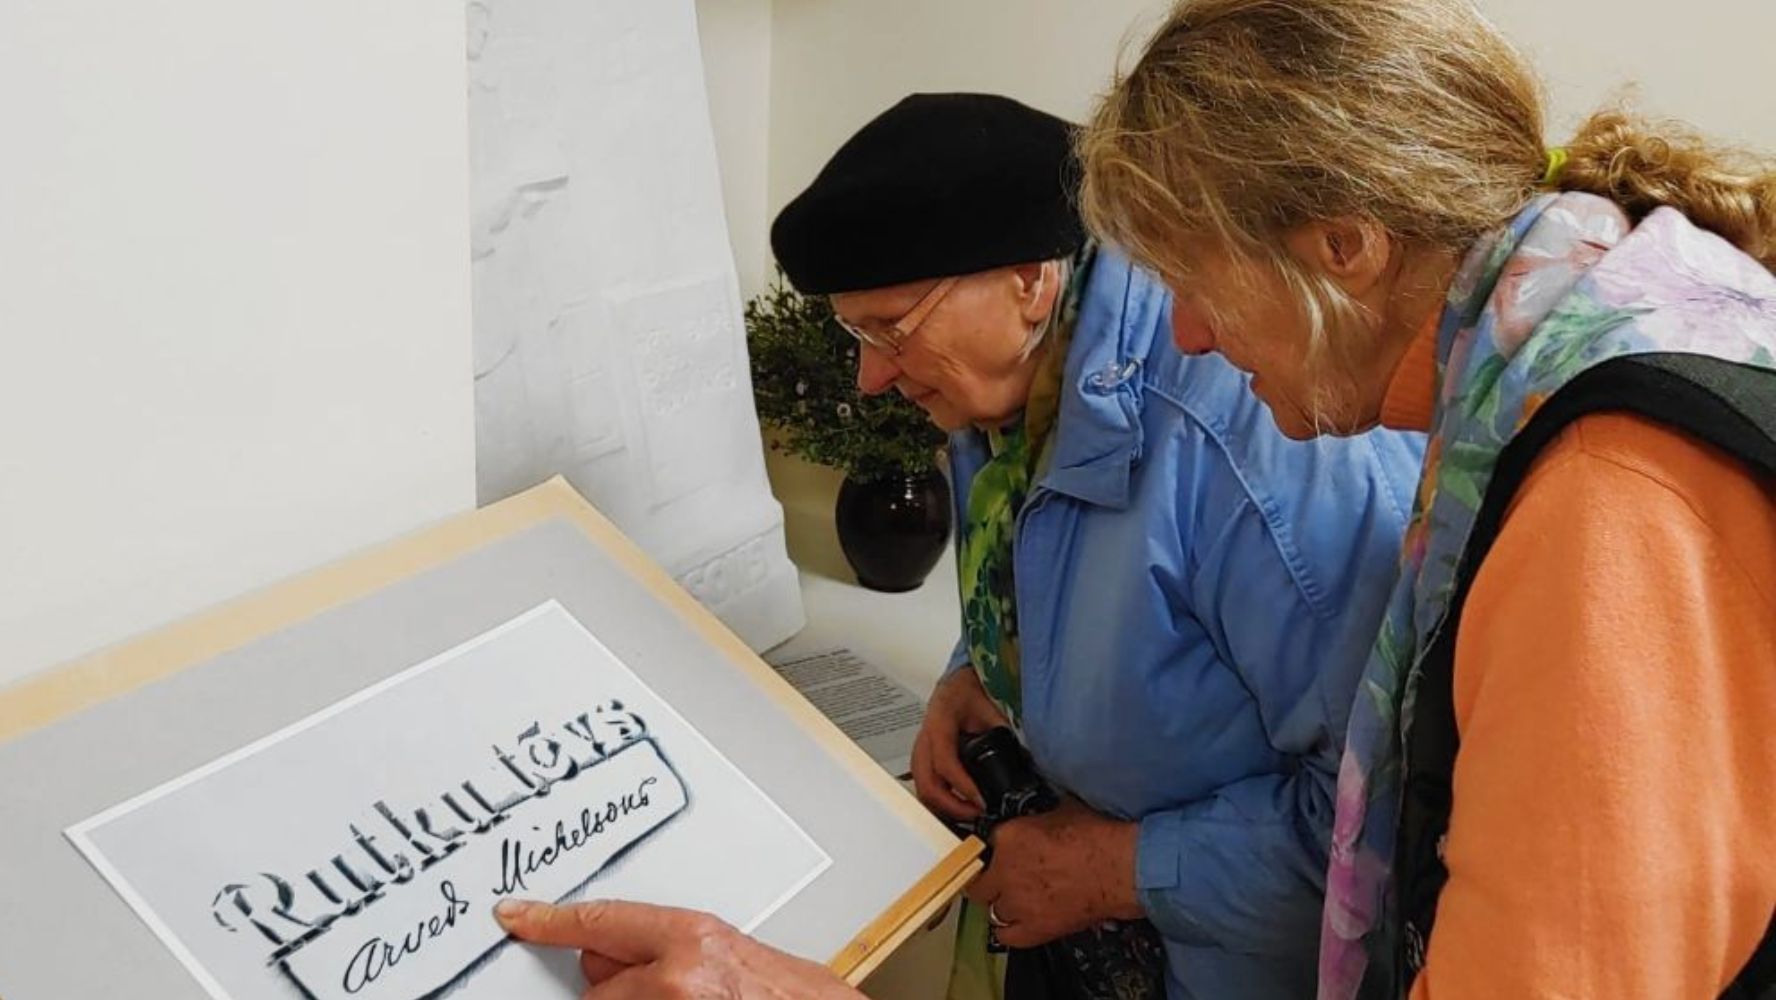 Rutku tēvs
Arveds Michelsons